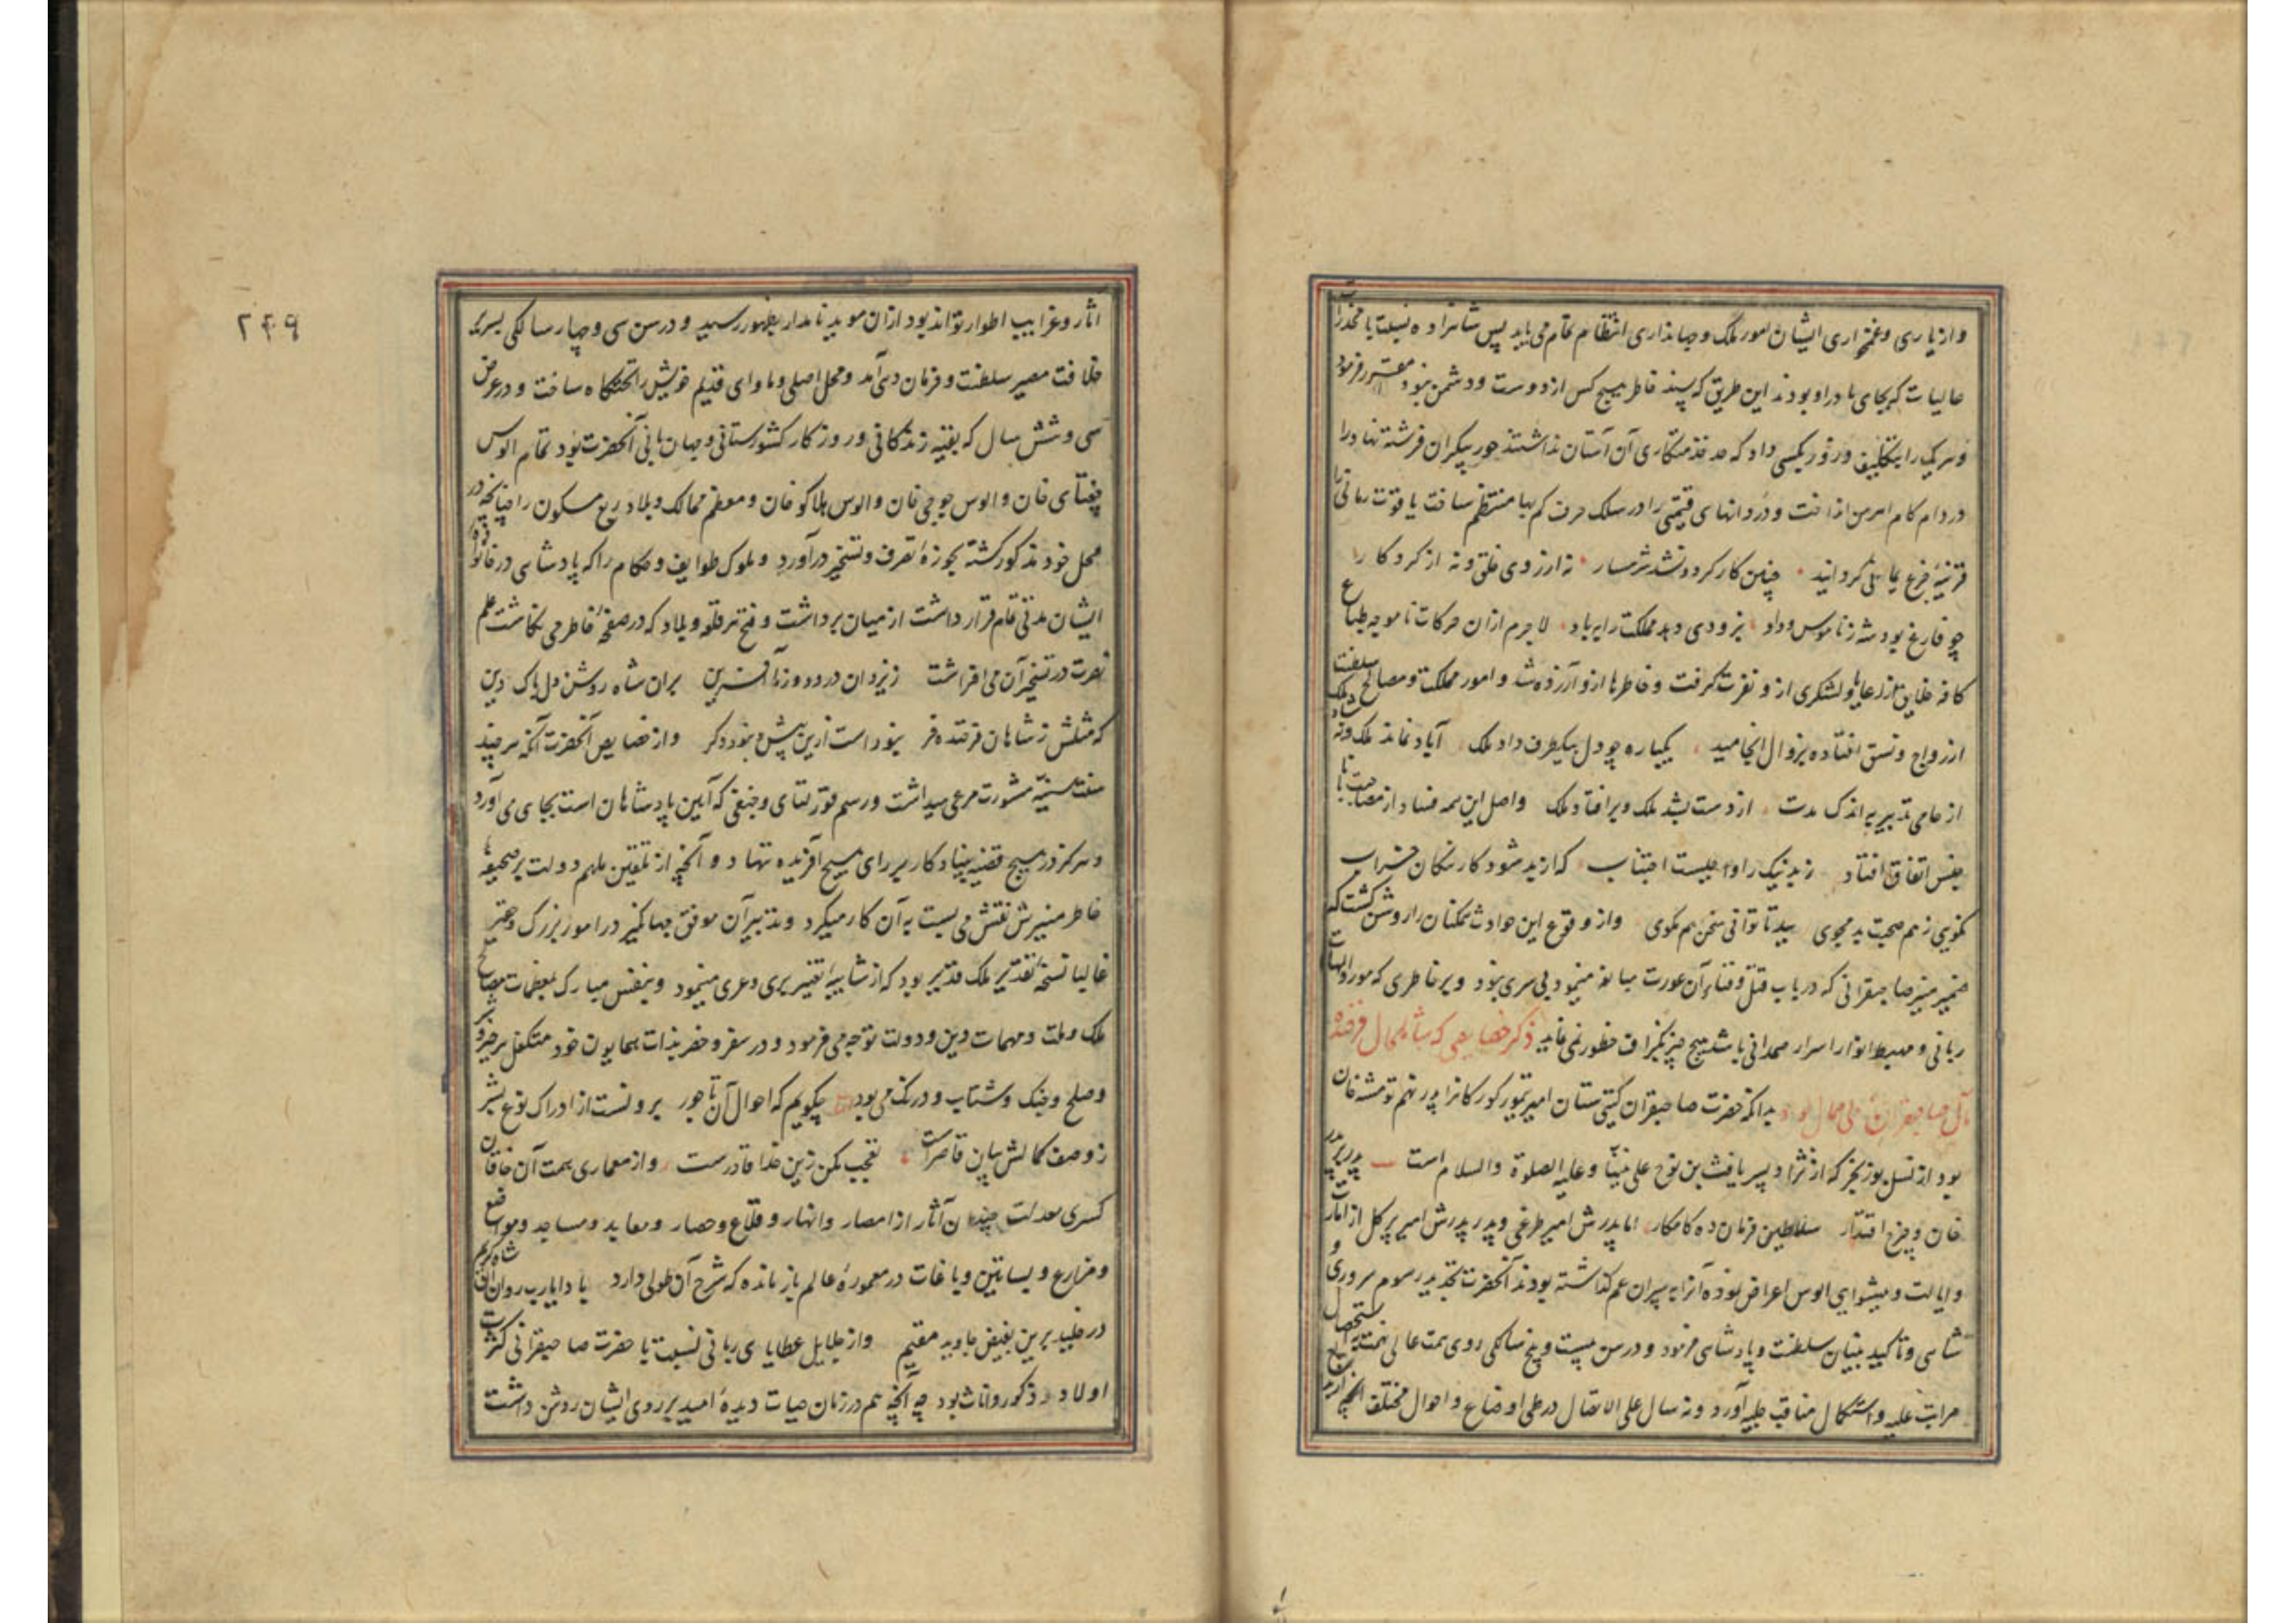 و از یاری و غمخواری ایشان امور ملک و جهانداری انتظام تمام می یابد پس شاهزاده نسبت با مخدرات
عالیات که بجای مادر او بودند این طریق که پسند خاطر هیچ کس از دوست و دشمن نبود مقرر فرمود
و هر یک را بتکلیف و زور بکسی داد که حد خدمتکاری آن آستان نداشتند حور پیکران فرشته نهاد را
در دام کام اهرمن انداخت و دردانهای قیمتی را در سلک حرف کم بها منتظم ساخت یاقوت رمانی را
قرینهٔ جزع یمانی گردانید چنین کار کرد و نشد شرمسار نه از روی خلق و نه از کردگار
چو فارغ بود شه ز ناموس و داد بزودی دهد مملکت را بباد لاجرم ازان حرکات ناموجه طباع
کافه خلایق از رعایا و لشکری ازو نفرت گرفت و خاطرها ازو آزرده شد و امور مملکت و مصالح سلطنت
از رواج و نسق افتاده بزوال انجامید یکباره چو دل بیکطرف داد ملک آباد نماند ملک و نه شاد ملک
از خامی تدبیر به اندک مدت از دست بشد ملک و برافتاد ملک و اصل این همه فساد از مصاحبت با نا
جنس اتفاق افتاد ز بد نیک را واجبست اجتناب که از بد شود کار نیکان خراب
نکویی ز هم صحبت بد مجوی ببد تا توانی سخن هم مگوی و از وقوع این حوادث همکنان را روشن گشت که
ضمیر منیر صاحبقرانی که در باب قتل و فناء آن عورت مبالغه مینمود بی سری نبود و بر خاطری که مورد الهامات
ربانی و مهبط انوار اسرار صمدانی باشد هیچ چیز بگزاف خطور نمی نماید ذکر خصایصی که شامل حال فرخنده
مآل صاحبقران بود بدانکه حضرت صاحبقران گیتی ستان امیر تیمور گورکان را پدر نهم تومنه خان
بود از نسل بوزنجر که از نژاد پسر یافث بن نوح علی نبینا و علیه الصلوة والسلام است پدر بر پدر
خان و چرخ اقتدار سلاطین فرمان ده کامکار اما پدرش امیر طرغای و پدر پدرش امیر برکل از امارت
و ایالت و پیشوایی الوس اعراض نموده آنرا به پسران عم گذاشته بودند آنحضرت تجدید رسوم سروری و
شاهی و تاکید بنیان سلطنت و پادشاهی فرمود و در سن بیست و پنج سالگی روی همت عالی نهمت به استحصال
مراتب علیه و استکمال مناقب جلیه آورد و نه سال علی الاتصال در طی اوضاع و احوال مختلف آنچه از بدایع
۲۴۹
آثار و غرایب اطوار تواند بود ازان موید نامدار بظهور رسید و در سن سی و چهار سالگی بسریر
خلافت مصیر سلطنت و فرمان دهی آمد و محل اصلی و ماوای قدیم خویش را تختگاه ساخت و در عرض
سی و شش سال که بقیه زندگانی و روزگار کشورستانی و جهان بانی آنحضرت بود تمام الوس
چغتای خان و الوس جوجی خان و الوس هلاکو خان و معظم ممالک و بلاد ربع مسکون را چنانچه در
محل خود مذکور گشته بحوزهٔ تصرف و تسخیر درآورد و ملوک طوایف و حکام را که پادشاهی در خانوادهٔ
ایشان مدتی تمام قرار داشت از میان برداشت و فتح هر قلعه و بلاد که در صفحهٔ خاطر می نگاشت علم
نصرت در تسخیر آن می افراشت ز یزدان درود و ز ما آفرین بران شاه روشن دل پاک دین
که مثلش ز شاهان فرخنده فر نبوداست ازین پیش و نبود دگر و از خصایص آنحضرت آنکه هر چند
سنت سنیهٔ مشورت مرعی میداشت و رسم قورلتای و جنقی که آیین پادشاهان است بجای می آورد
و هرگز در هیچ قضیه بنیاد کار بر رای هیچ آفریده ننهاد و آنچه از تلقین ملهم دولت بر صحیفهٔ
خاطر منیرش نقش می بست به آن کار میکرد و تدبیر آن موفق جهانگیر در امور بزرگ و حقیر
غالبا نسخهٔ تقدیر ملک قدیر بود که از شایبهٔ تغییر بری و عری مینمود و بنفس مبارک بمعظمات مصالح
ملک و ملت و مهمات دین و دولت توجه می فرمود و در سفر و حضر بذات همایون خود متکفل هر خیر و شر
و صلح و جنگ و شتاب و درنگ می بود چگویم که احوال آن تاجور برونست از ادراک نوع بشر
ز وصف کمالش بیان قاصر است تعجب مکن زین خدا قادرست و از معماری همت آن خاقان
کسری معدلت چندان آثار از امصار و انهار و قلاع و حصار و معابد و مساجد و مواضع
و مزارع و بساتین و باغات در معمورهٔ عالم باز مانده که شرح آن طولی دارد بادا یارب روان آن شاه کریم
در خلد برین بفیض جاوید مقیم و از جلایل عطایای ربانی نسبت با حضرت صاحبقرانی کثرت
اولاد ذکور و اناث بود چه آنچه هم در زمان حیات دیدهٔ امید بر روی ایشان روشن داشت